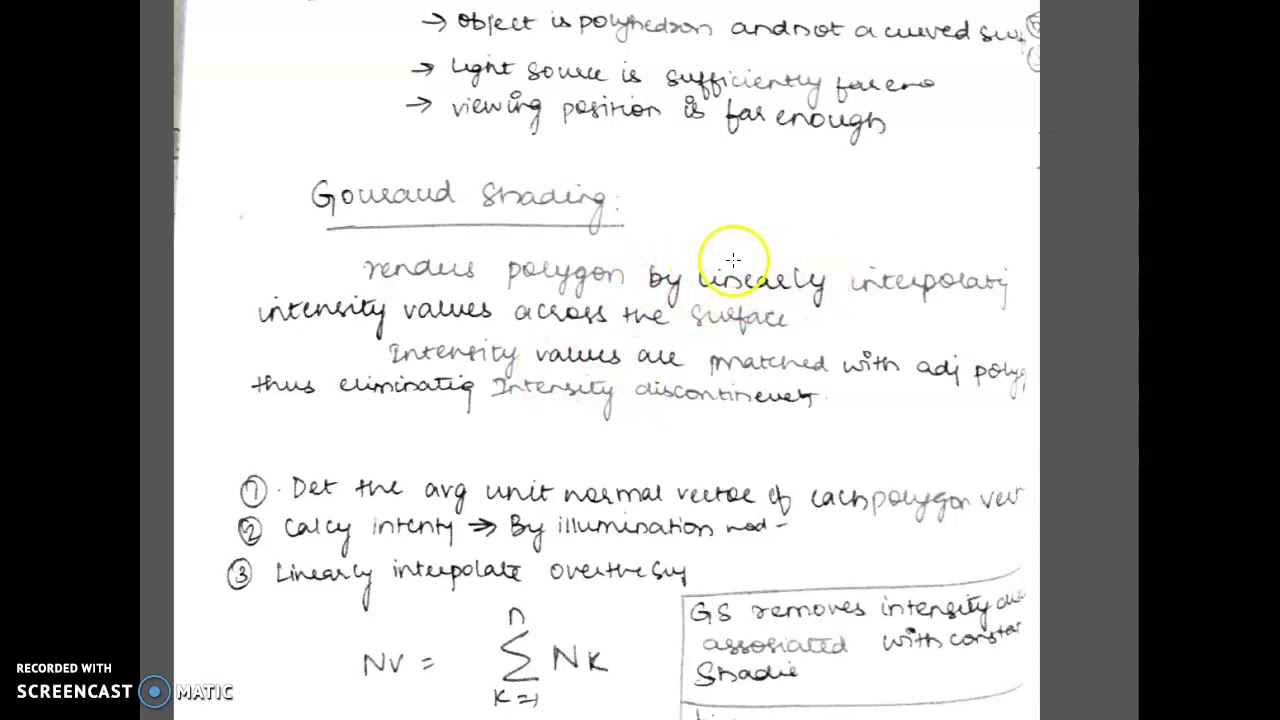 → object is polyhedron and not a curved sur
→ light source is sufficiently far eno
→ viewing position is far enough
Gouraud Shading:
renders polygon by linearly interpolatig
intensity values across the surface
Intensity values are matched with adj polyg
thus eliminatig Intensity
① . Det the avg unit normal vector of each polygon ver
② Calcy intenty → By illumination mod -
③ Linearly interpolate over the sur
n
Nv = Σ Nk
k=1
GS removes intensity
associated with constan
Shadie
RECORDED WITH
SCREENCAST MATIC